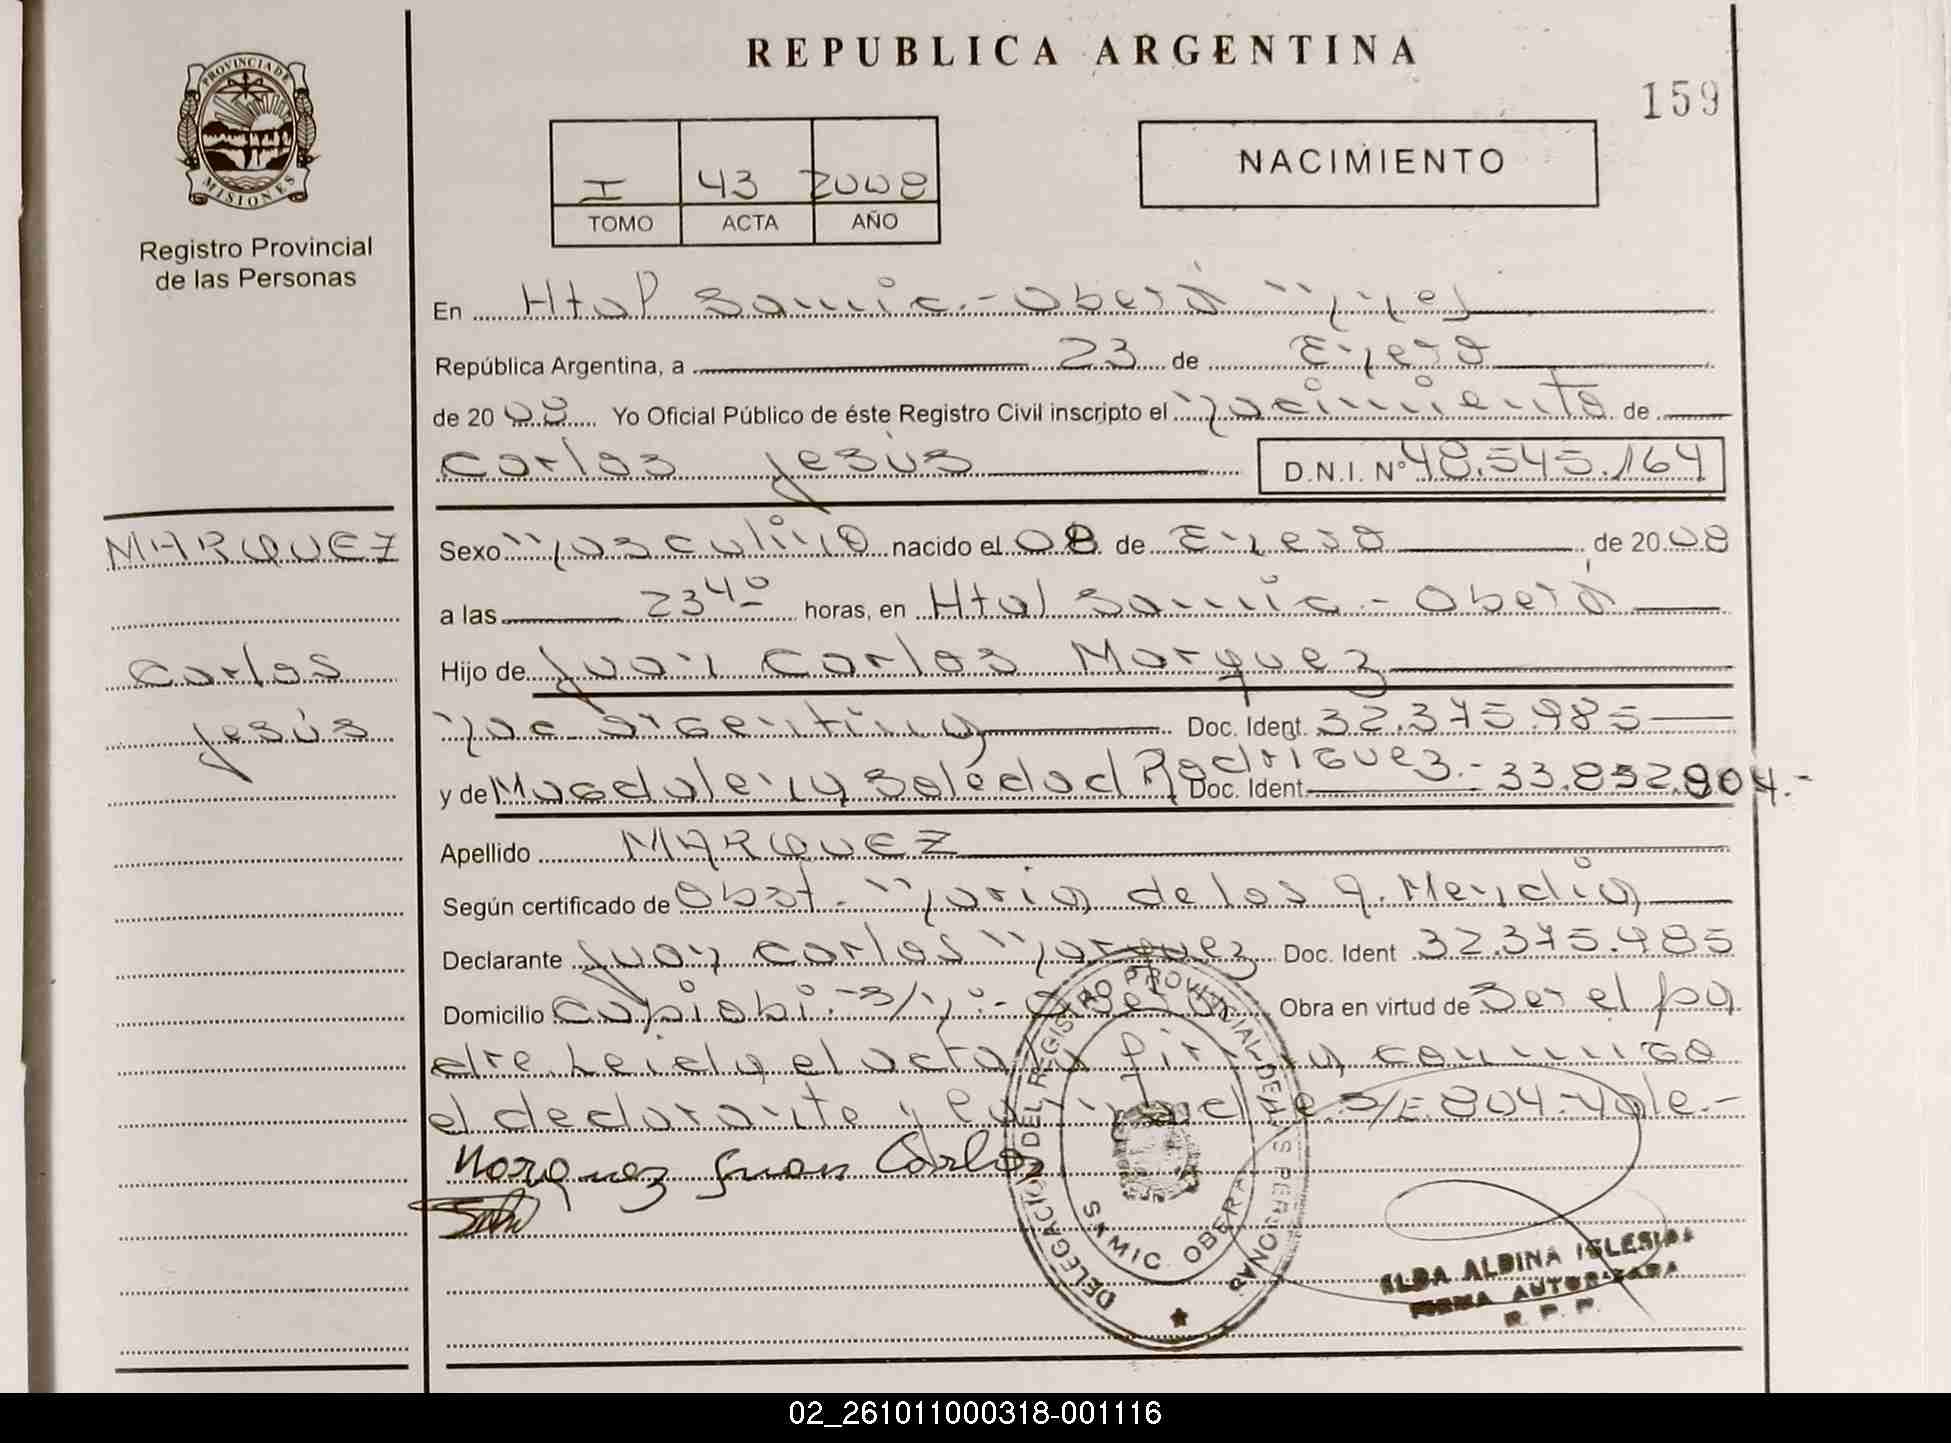 REPUBLICA ARGENTINA
159
PROVINCIA DE MISIONES
Registro Provincial
de las Personas
I 43 2008
TOMO ACTA AÑO
NACIMIENTO
En Htal Samic.- Oberá Mnes
República Argentina, a 23 de Enero
de 2008 Yo Oficial Público de éste Registro Civil inscripto el nacimiento de
Carlos Jesús D.N.I. Nº 48.545.164
MARQUEZ
Carlos
Jesús
Sexo Masculino nacido el 08 de Enero de 2008
a las 23⁴⁰ horas, en Htal Samic - Oberá
Hijo de Juan Carlos Marquez
nac. argentina Doc. Ident. 32.375.985
y de Magdalena Soledad Rodriguez.- Doc. Ident. 33.852.804.-
Apellido MARQUEZ
Según certificado de Obst. Maria de los A. Mendia
Declarante Juan Carlos Marquez Doc. Ident 32.375.985
Domicilio Capiobi.- S/Nº.- Oberá Obra en virtud de Ser el pa
dre. Leida el acta, la firma conmigo
el declarante y la S/E. 804. Vale.-
Marquez Juan Carlos
DELEGACION DEL REGISTRO PROVINCIAL DE LAS PERSONAS
SAMIC OBERA
ELDA ALDINA IGLESIAS
FIRMA AUTORIZADA
R. P. P.
02_261011000318-001116